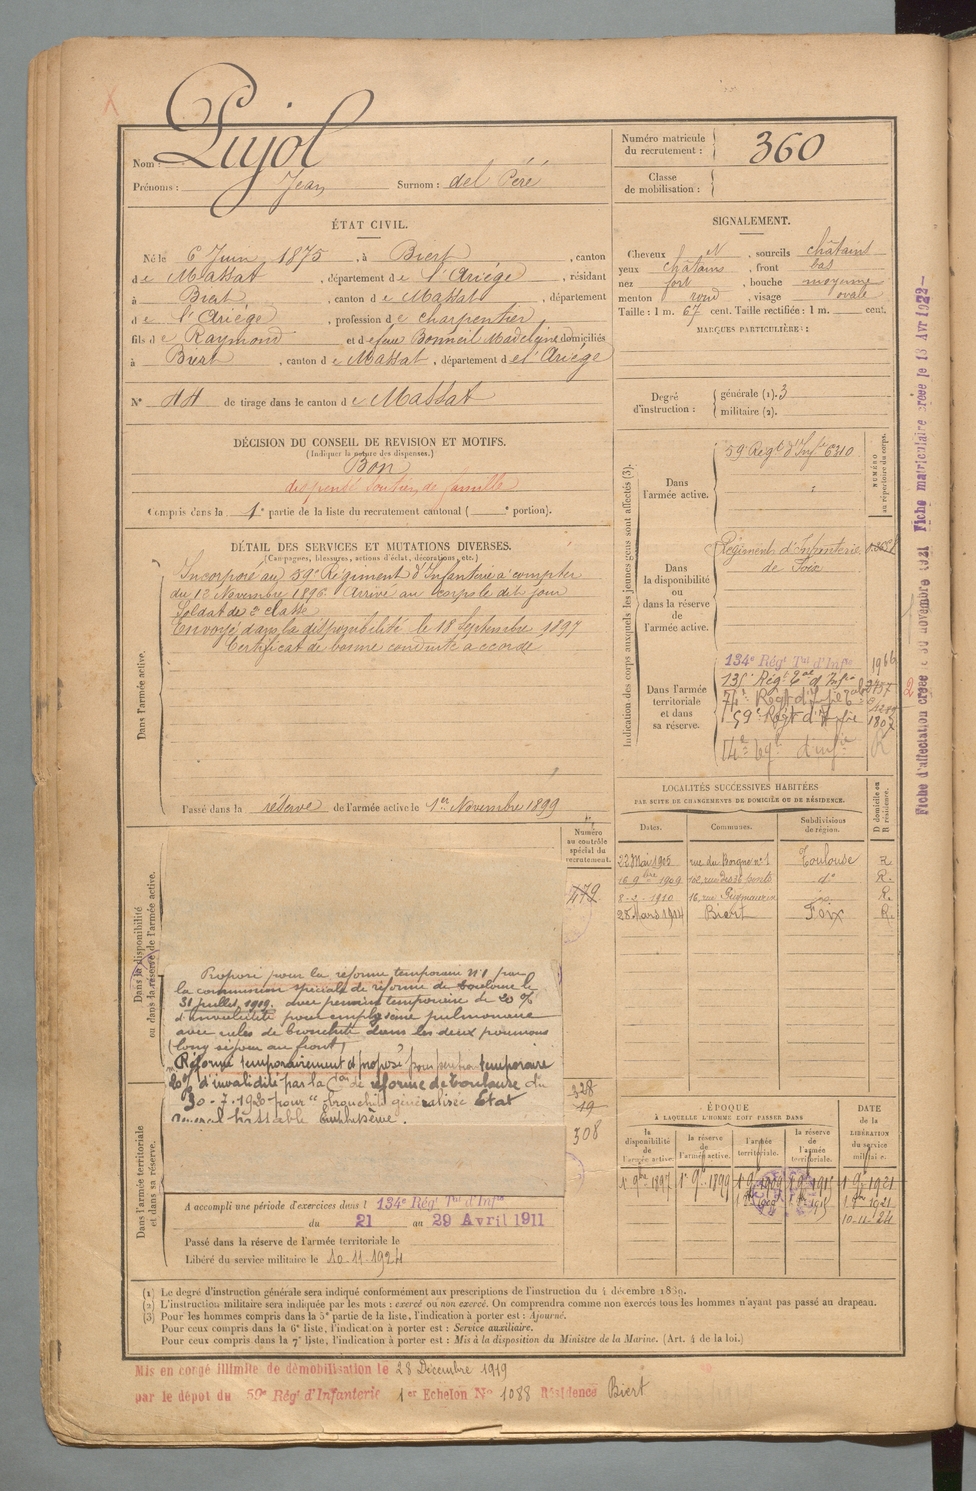 Nom : Pujol
Prénoms : Jean Surnom : del Péré
Numéro matricule du recrutement : 360
Classe de mobilisation :
ÉTAT CIVIL.
Né le 6 Juin 1875, à Biert, canton
de Massat, département de l'Ariége, résidant
à Biert, canton de Massat, département
de l'Ariége, profession de charpentier
fils de Raymond et de feue Bonneil Madelaine domiciliés
à Biert, canton de Massat, département de l'Ariége
N° 44 de tirage dans le canton de Massat
SIGNALEMENT.
Cheveux N, sourcils châtains
yeux châtains, front bas
nez fort, bouche moyenne
menton rond, visage ovale
Taille : 1 m. 67 cent. Taille rectifiée : 1 m. cent.
MARQUES PARTICULIÈRES :
Degré d'instruction : générale (1). 3
militaire (2).
DÉCISION DU CONSEIL DE REVISION ET MOTIFS.
(Indiquer la nature des dispenses.)
Bon
dispensé Soutien de famille
Compris dans la 1e partie de la liste du recrutement cantonal ( e portion).
DÉTAIL DES SERVICES ET MUTATIONS DIVERSES.
(Campagnes, blessures, actions d'éclat, décorations, etc.)
Dans l'armée active.
Incorporé au 59e Régiment d'Infanterie à compter
du 13 Novembre 1896 Arrivé au corps le dit jour
Soldat de 2e classe
Envoyé dans la disponibilité le 18 Septembre 1897
Certificat de bonne conduite accordé
Passé dans la réserve de l'armée active le 1er Novembre 1899
Indication des corps auxquels les jeunes gens sont affectés (3).
NUMÉRO au répertoire du corps.
Dans l'armée active.
59e Régt d'Infie 6310
Dans la disponibilité ou dans la réserve de l'armée active.
Régiment d'Infanterie
de Foix
Dans l'armée territoriale et dans sa réserve.
134e Régt Tal d'Infie
135e Régt Tal d'Infie
59e Régt d'Infie 1807
LOCALITÉS SUCCESSIVES HABITÉES
PAR SUITE DE CHANGEMENTS DE DOMICILE OU DE RÉSIDENCE.
Dates. Communes. Subdivisions de région. D domicile ou R résidence.
22 Mai 1905 rue du Borgne n° 1 Toulouse R
16 9bre 1909 d° R.
8-2-1910 16, rue Guymaurin R.
28 Mars 1914 Biert Foix R.
Numéro au contrôle spécial du recrutement.
472
328
19
308
Dans la disponibilité ou dans la réserve de l'armée active.
Proposé pour la réforme temporaire n° 1 par
la commission spéciale de réforme de Toulouse le
31 juillet 1919. avec pension temporaire de 20 %
d'invalidité pour emphysème pulmonaire
avec râles de bronchite dans les deux poumons
(long séjour au front)
Réformé temporairement et proposé pour pension temporaire
20% d'invalidité par la Con de réforme de Toulouse du
30-7-1920 pour "bronchite généralisée Etat
général emphysème.
Dans l'armée territoriale et dans sa réserve.
A accompli une période d'exercices dans l 134e Régt Tal d'Infie
du 21 au 29 Avril 1911
Passé dans la réserve de l'armée territoriale le
Libéré du service militaire le 10-11-1924
ÉPOQUE
À LAQUELLE L'HOMME DOIT PASSER DANS
la disponibilité de l'armée active. la réserve de l'armée active. l'armée territoriale. la réserve de l'armée territoriale.
DATE de la LIBÉRATION du service militaire.
1er 9bre 1897 1er 9bre 1899 1er 9bre 1909 1er 9bre 1915 1er 9bre 1921
1er 9bre 1921
10-11-24
(1) Le degré d'instruction générale sera indiqué conformément aux prescriptions de l'instruction du 4 décembre 1889.
(2) L'instruction militaire sera indiquée par les mots : exercé ou non exercé. On comprendra comme non exercés tous les hommes n'ayant pas passé au drapeau.
(3) Pour les hommes compris dans la 5e partie de la liste, l'indication à porter est : Ajourné.
Pour ceux compris dans la 6e liste, l'indication à porter est : Service auxiliaire.
Pour ceux compris dans la 7e liste, l'indication à porter est : Mis à la disposition du Ministre de la Marine. (Art. 4 de la loi.)
Mis en congé illimité de démobilisation le 28 Décembre 1919
par le dépôt du 59e Régt d'Infanterie 1er Echelon N° 1088 Résidence Biert
Fiche d'affectation créée le 30 novembre 1921 Fiche matriculaire créée le 18 Avr 1922